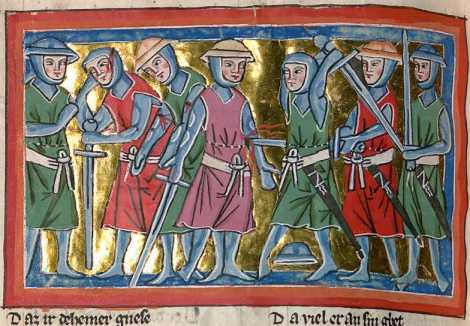 D az ir dehemer gnese
D a viel er au sin gbet